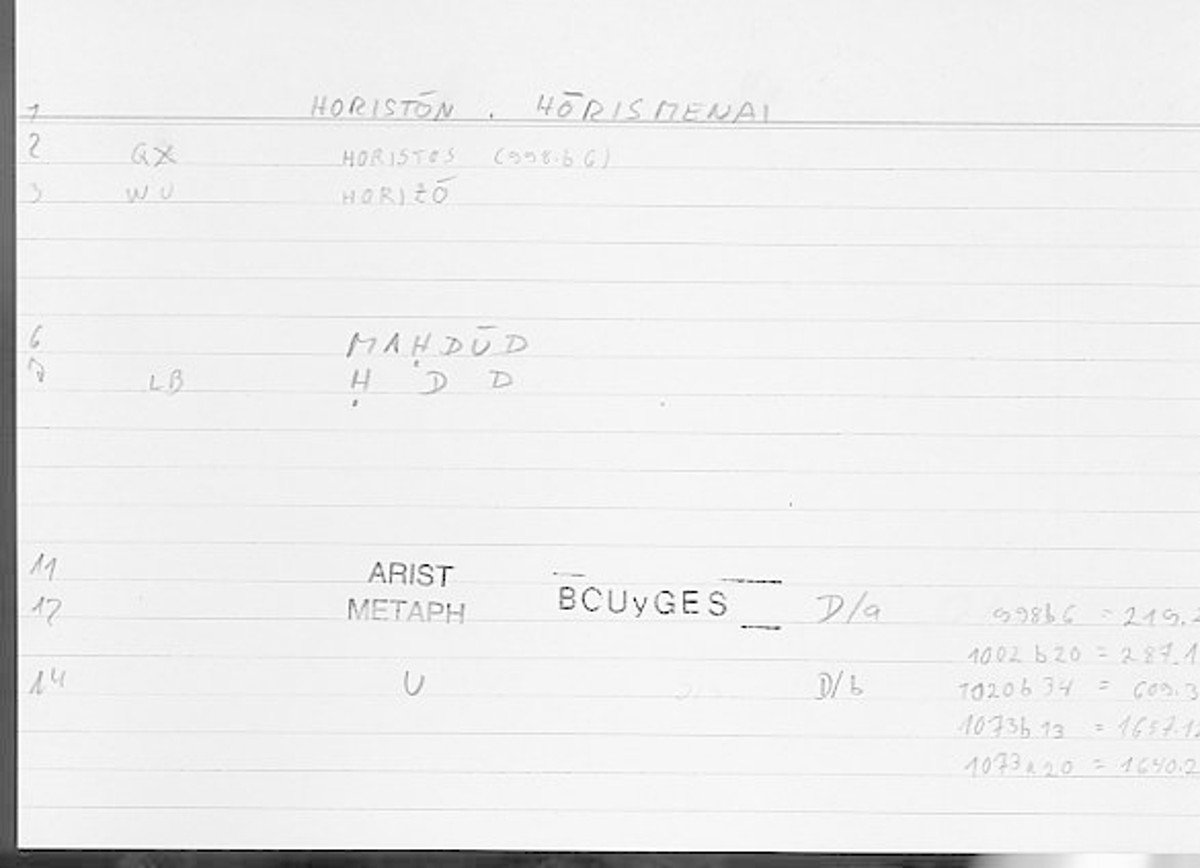 1 HORISTŌN . HŌRISMENAI
2 GX HORISTOS (998.b 6)
3 WU HORIZŌ
6 MAḤDŪD
7 LB Ḥ D D
11 ARIST
12 METAPH BCUyGES D/a 998b6 = 219.
1002 b20 = 287.1
14 U D/b 1020b 34 = 609.3
1073b 13 = 1657.12
1073a20 = 1640.2